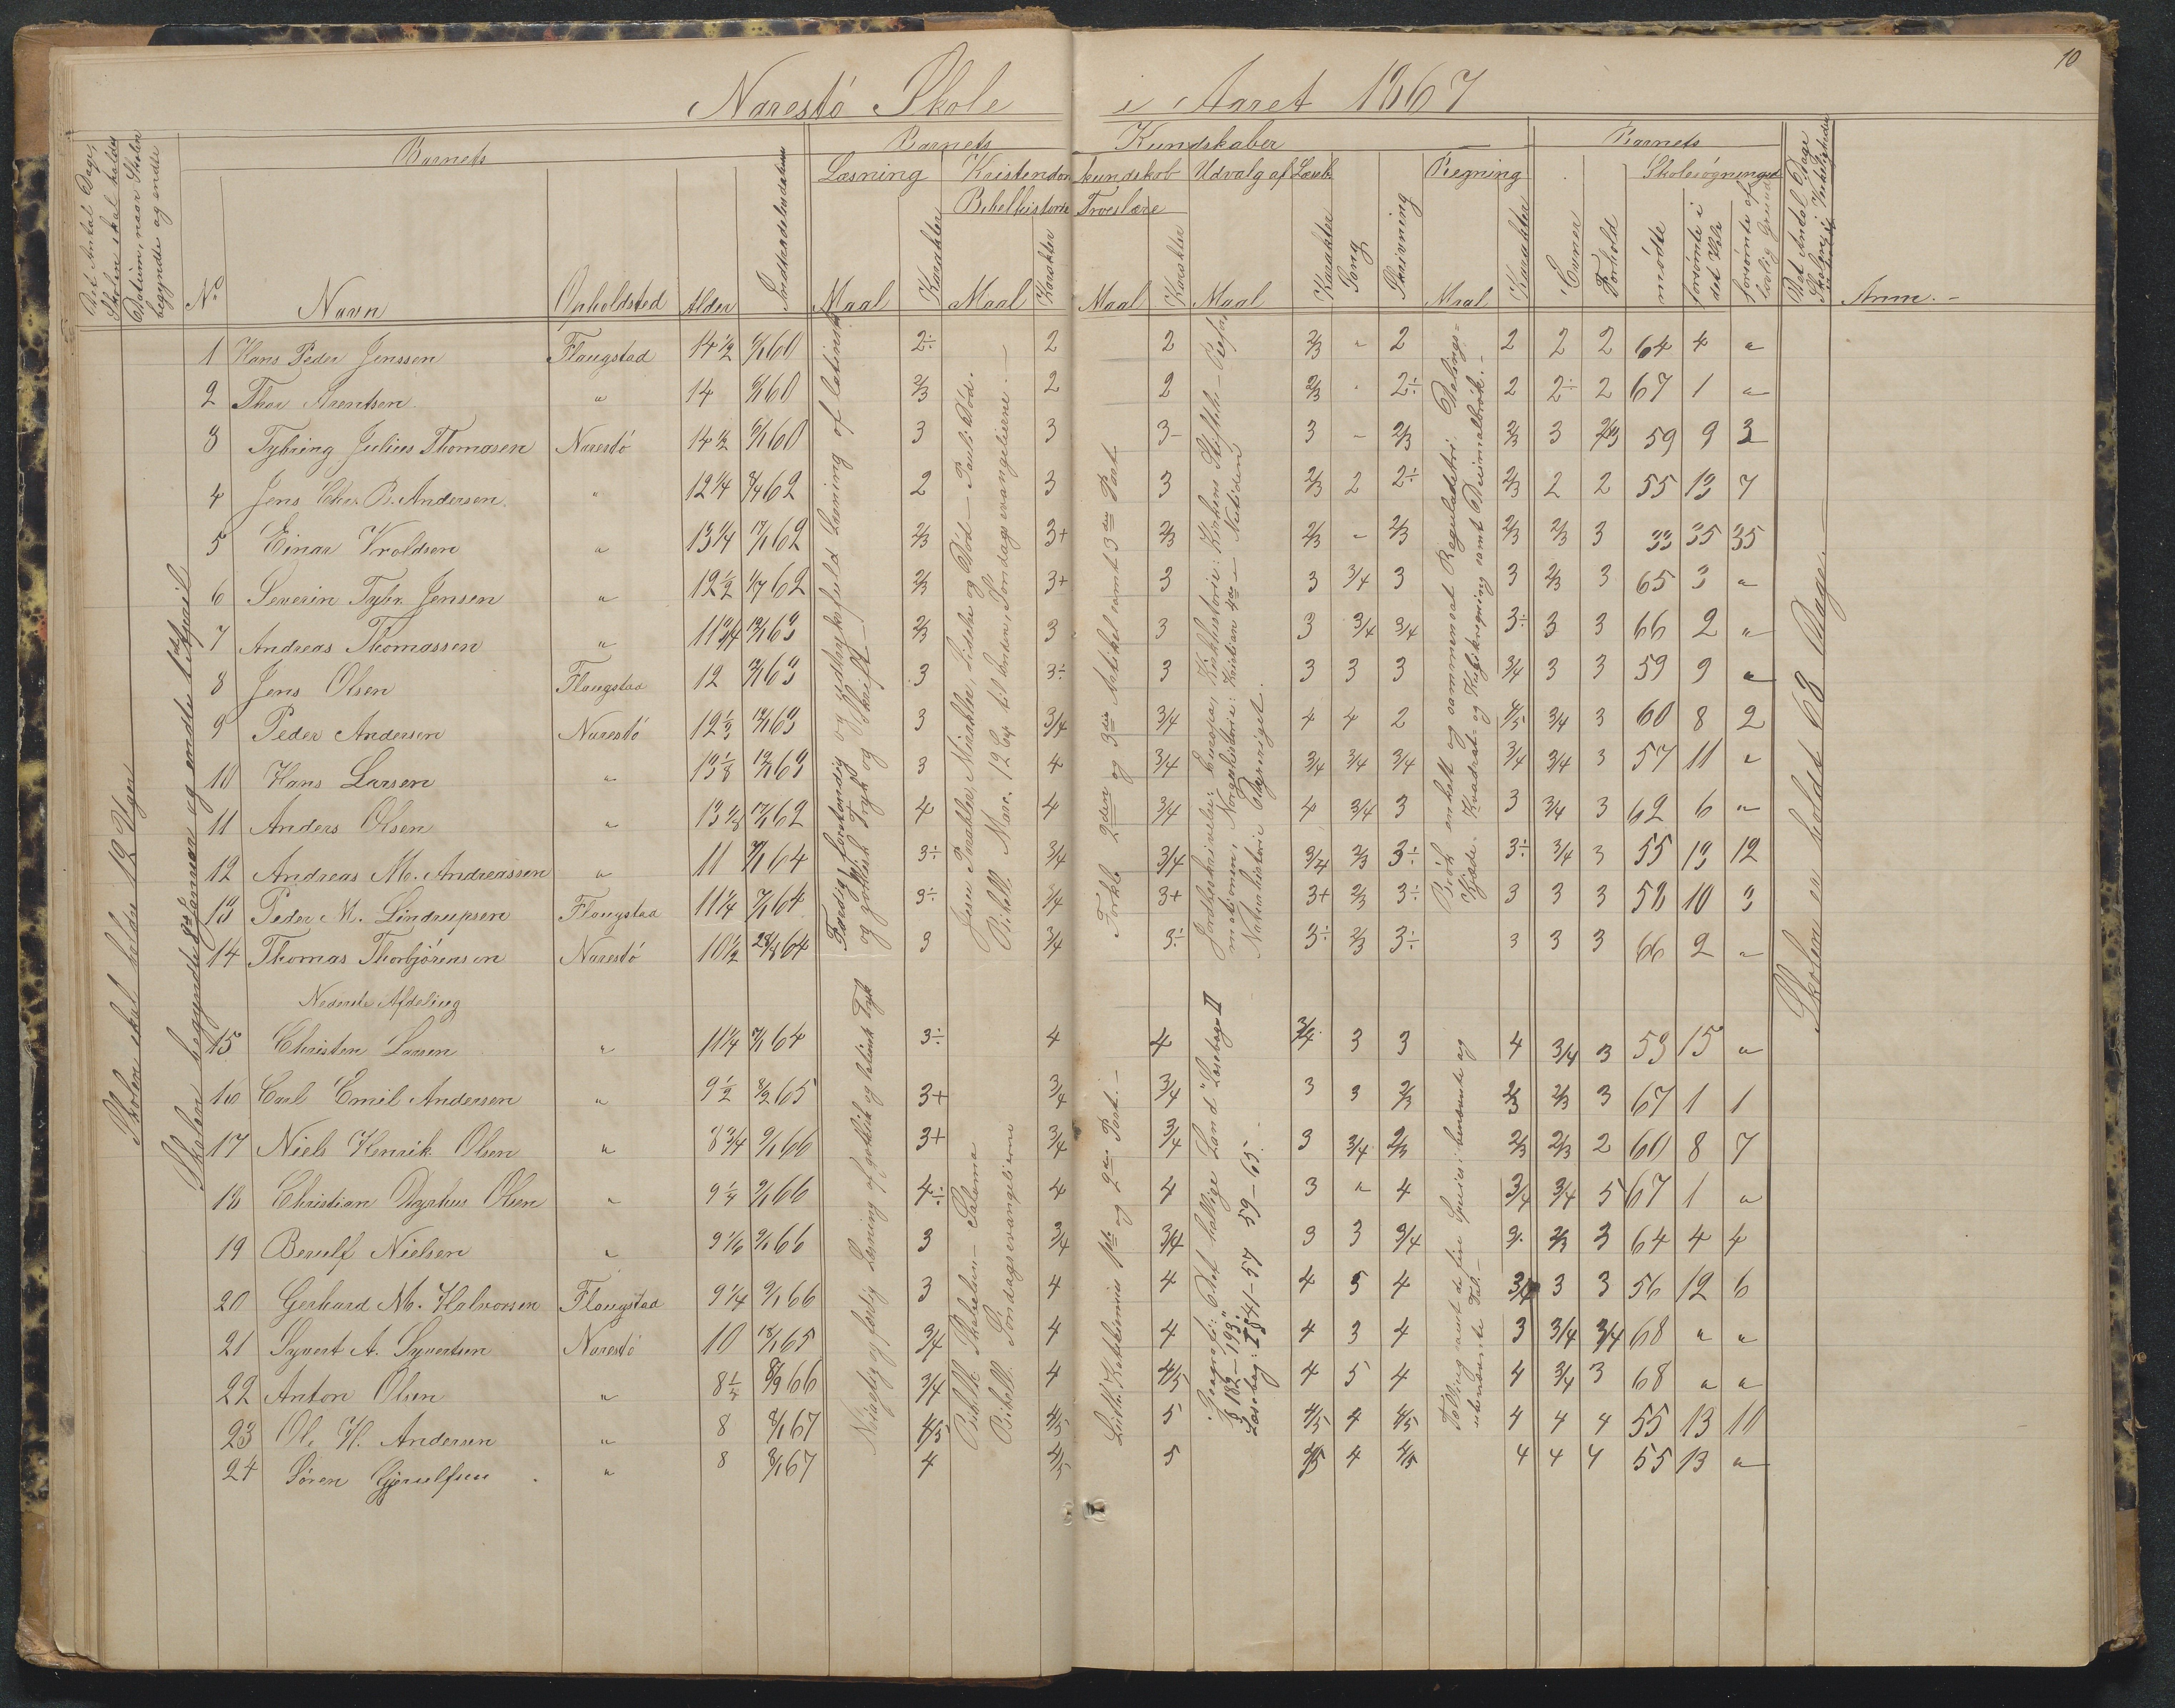 10
Narestö Skole i Aaret 1867
Det Antal Dage, Skolen skal holdes
Datum, naar Skolen begyndte og endte
Barnets
No
Navn
Opholdsted
Alder
Indtrædelsesdatum
Barnets Kundskaber
Læsning
Maal
Karakter
Kristendomskundskab
Bibelhistorie
Maal
Karakter
Troeslære
Maal
Karakter
Udvalg af Læseb.
Maal
Karakter
Sang
Skrivning
Regning
Maal
Karakter
Barnets
Evner
Forhold
Skolesøgningen
mødte
forsömte i det Hele
forsömte af lovlig Grund
Det Antal Dage Skolen i Virkeligheden
Anm.
Skolen skal holdes 12 Uger
Skolen begyndte 8de Januar og endte 12 April
1 Hans Peder Jenssen Flaugstad 14 1/2 60 2÷ 2 2 2/3 " 2 2 2 2 64 4 "
2 Thor Arentsen " 14 60 2/3 2 2 2/3 2÷ 2 2÷ 2 67 1 "
3 Tybring Julius Thomasen Narestö 14 1/2 60 3 3 3 3 - 2/3 2/3 3 2/3 59 9 3
4 Jens Chr. B. Andersen " 12 1/4 62 2 3 3 2/3 2 2÷ 2/3 2 2 55 13 7
5 Einar Vroldsen " 13 1/4 62 2/3 3+ 2/3 2/3 - 2/3 2/3 2/3 3 33 35 35
6 Severin Tybr. Jensen " 12 1/2 62 2/3 3+ 3 3 3/4 3 3 2/3 3 65 3 "
7 Andreas Thomassen " 11 3/4 63 2/3 3 3 3 3/4 3/4 3÷ 3 3 66 2 "
8 Jens Olsen Flaugstad 12 63 3 3÷ 3 3 3 3 3/4 3 3 59 9 "
9 Peder Andersen Narestö 12 1/3 63 3 3/4 3/4 4 4 2 4/5 3/4 3 60 8 2
10 Hans Larsen " 13 1/8 63 3 4 3/4 3/4 3/4 3/4 3/4 3/4 3 57 11 "
11 Anders Olsen " 13 62 4 4 3/4 4 3/4 3 3 3/4 3 62 6 "
12 Andreas M. Andreassen " 11 64 3÷ 3/4 3/4 3/4 2/3 3÷ 3÷ 3/4 3 55 13 12
13 Peder M. Lindrupsen Flaugstad 11 1/4 64 3÷ 3/4 3+ 3+ 2/3 3÷ 3 3 3 58 10 3
14 Thomas Thorbjörensen Narestö 10 1/2 64 3 3/4 3÷ 3÷ 2/3 3÷ 3 3 3 66 2 "
Færdig, forstandig og udtryksfuld Læsning af latinsk og gothisk Tryk og Skrift.
Jesu Parabler, Mirakler, Lidelse og Död — Pauli Död.
Bibell. Marc. 12 Cap til Enden, Söndagsevangelierne.
Forkl. 2den og 3die Artikel samt 3die Part.
Jordbeskrivelse: Europa, Kirkehistorie: Kirkens Stiftelse — Reformationen, Norgeshistorie: Kristian 4de — Nutiden
Naturhistorie Dyreriget.
Brök enkelt og sammensat Reguladetri. Delings-, Kjæde-, Kvadrat- og Kubikregning samt Decimalbrök.
Skolen er holdt 68 Dage.
Nederste Afdeling
15 Christen Larsen " 11 1/4 64 3÷ 4 4 3/4 3 3 4 3/4 3 53 15 "
16 Carl Emil Andersen " 9 1/2 65 3+ 3/4 3/4 3 3 2/3 2/3 2/3 3 67 1 1
17 Niels Henrik Olsen " 8 3/4 66 3+ 3/4 3/4 3 3/4 2/3 2/3 2/3 2 60 8 7
18 Christian Olsen " 9 66 4÷ 4 4 3 " 4 3/4 3/4 5 67 1 "
19 Berulf Nielsen " 9 1/6 66 3 3/4 3/4 3 3 3/4 3 2/3 3 64 4 4
20 Gerhard M. Halvorsen Flaugstad 9 1/4 66 3 4 4 4 5 4 3/4 3 3 56 12 6
21 Syvert A. Syvertsen Narestö 10 65 3/4 4 4 4 3 4 3 3/4 3/4 68 " "
22 Anton Olsen " 8 66 3/4 4 4/5 4 5 4 4 3/4 3 68 " "
23 Ole H. Andersen " 8 67 4/5 4/5 5 4/5 4 4/5 4 4 4 55 13 10
24 Sören Gjerulfsen " 8 67 4 4/5 5 4/5 4 4/5 4 4 4 55 13 "
Nöiagtig og færdig Læsning af gothisk og latinsk Tryk
Bibelh. Skabelsen — Salomo
Bibell. Söndagsevangelierne
Luth. Katekismus 1ste og 2den Part.
Geografi: Det hellige Land "Læsebogs II § 182—193."
Læsebog: I § 41—57 59—65.
Tælling samt de fire Species i benævnte og ubenævnte Tal.